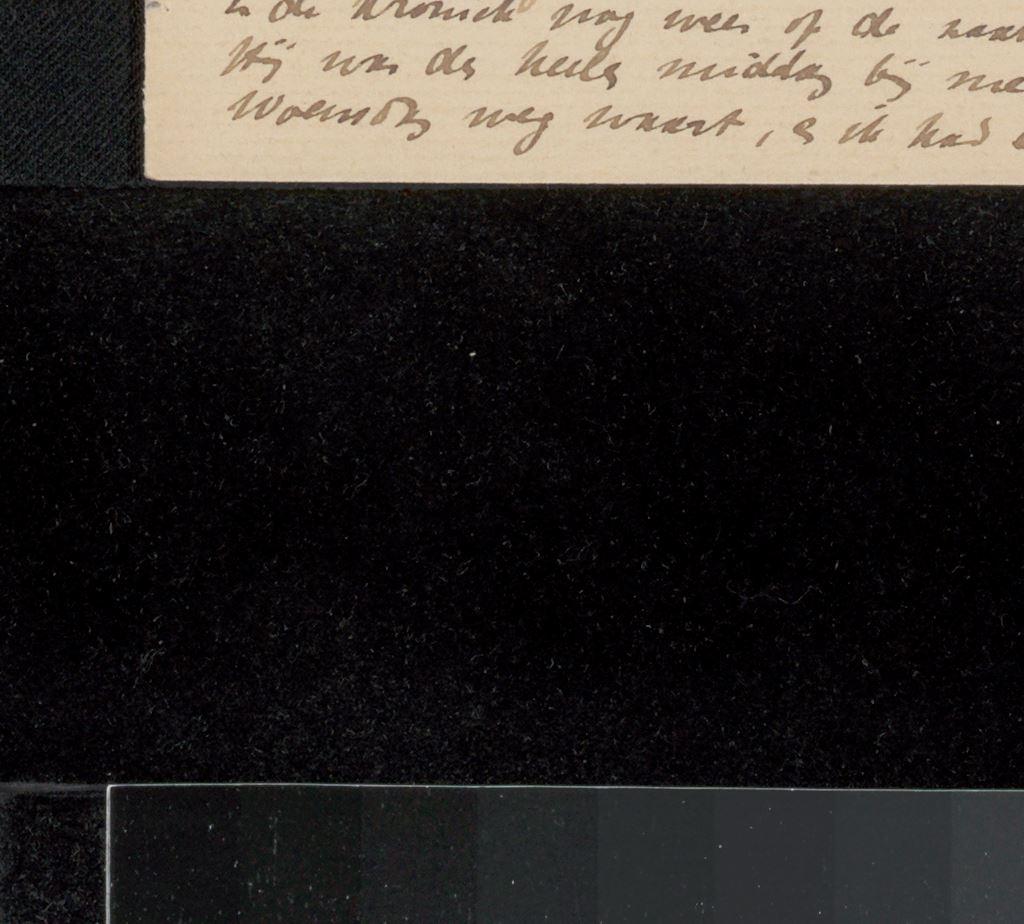 in de Kroniek nog weer of de naar
Hij was de heele middag bij me
Woensdag weg waart, & ik had